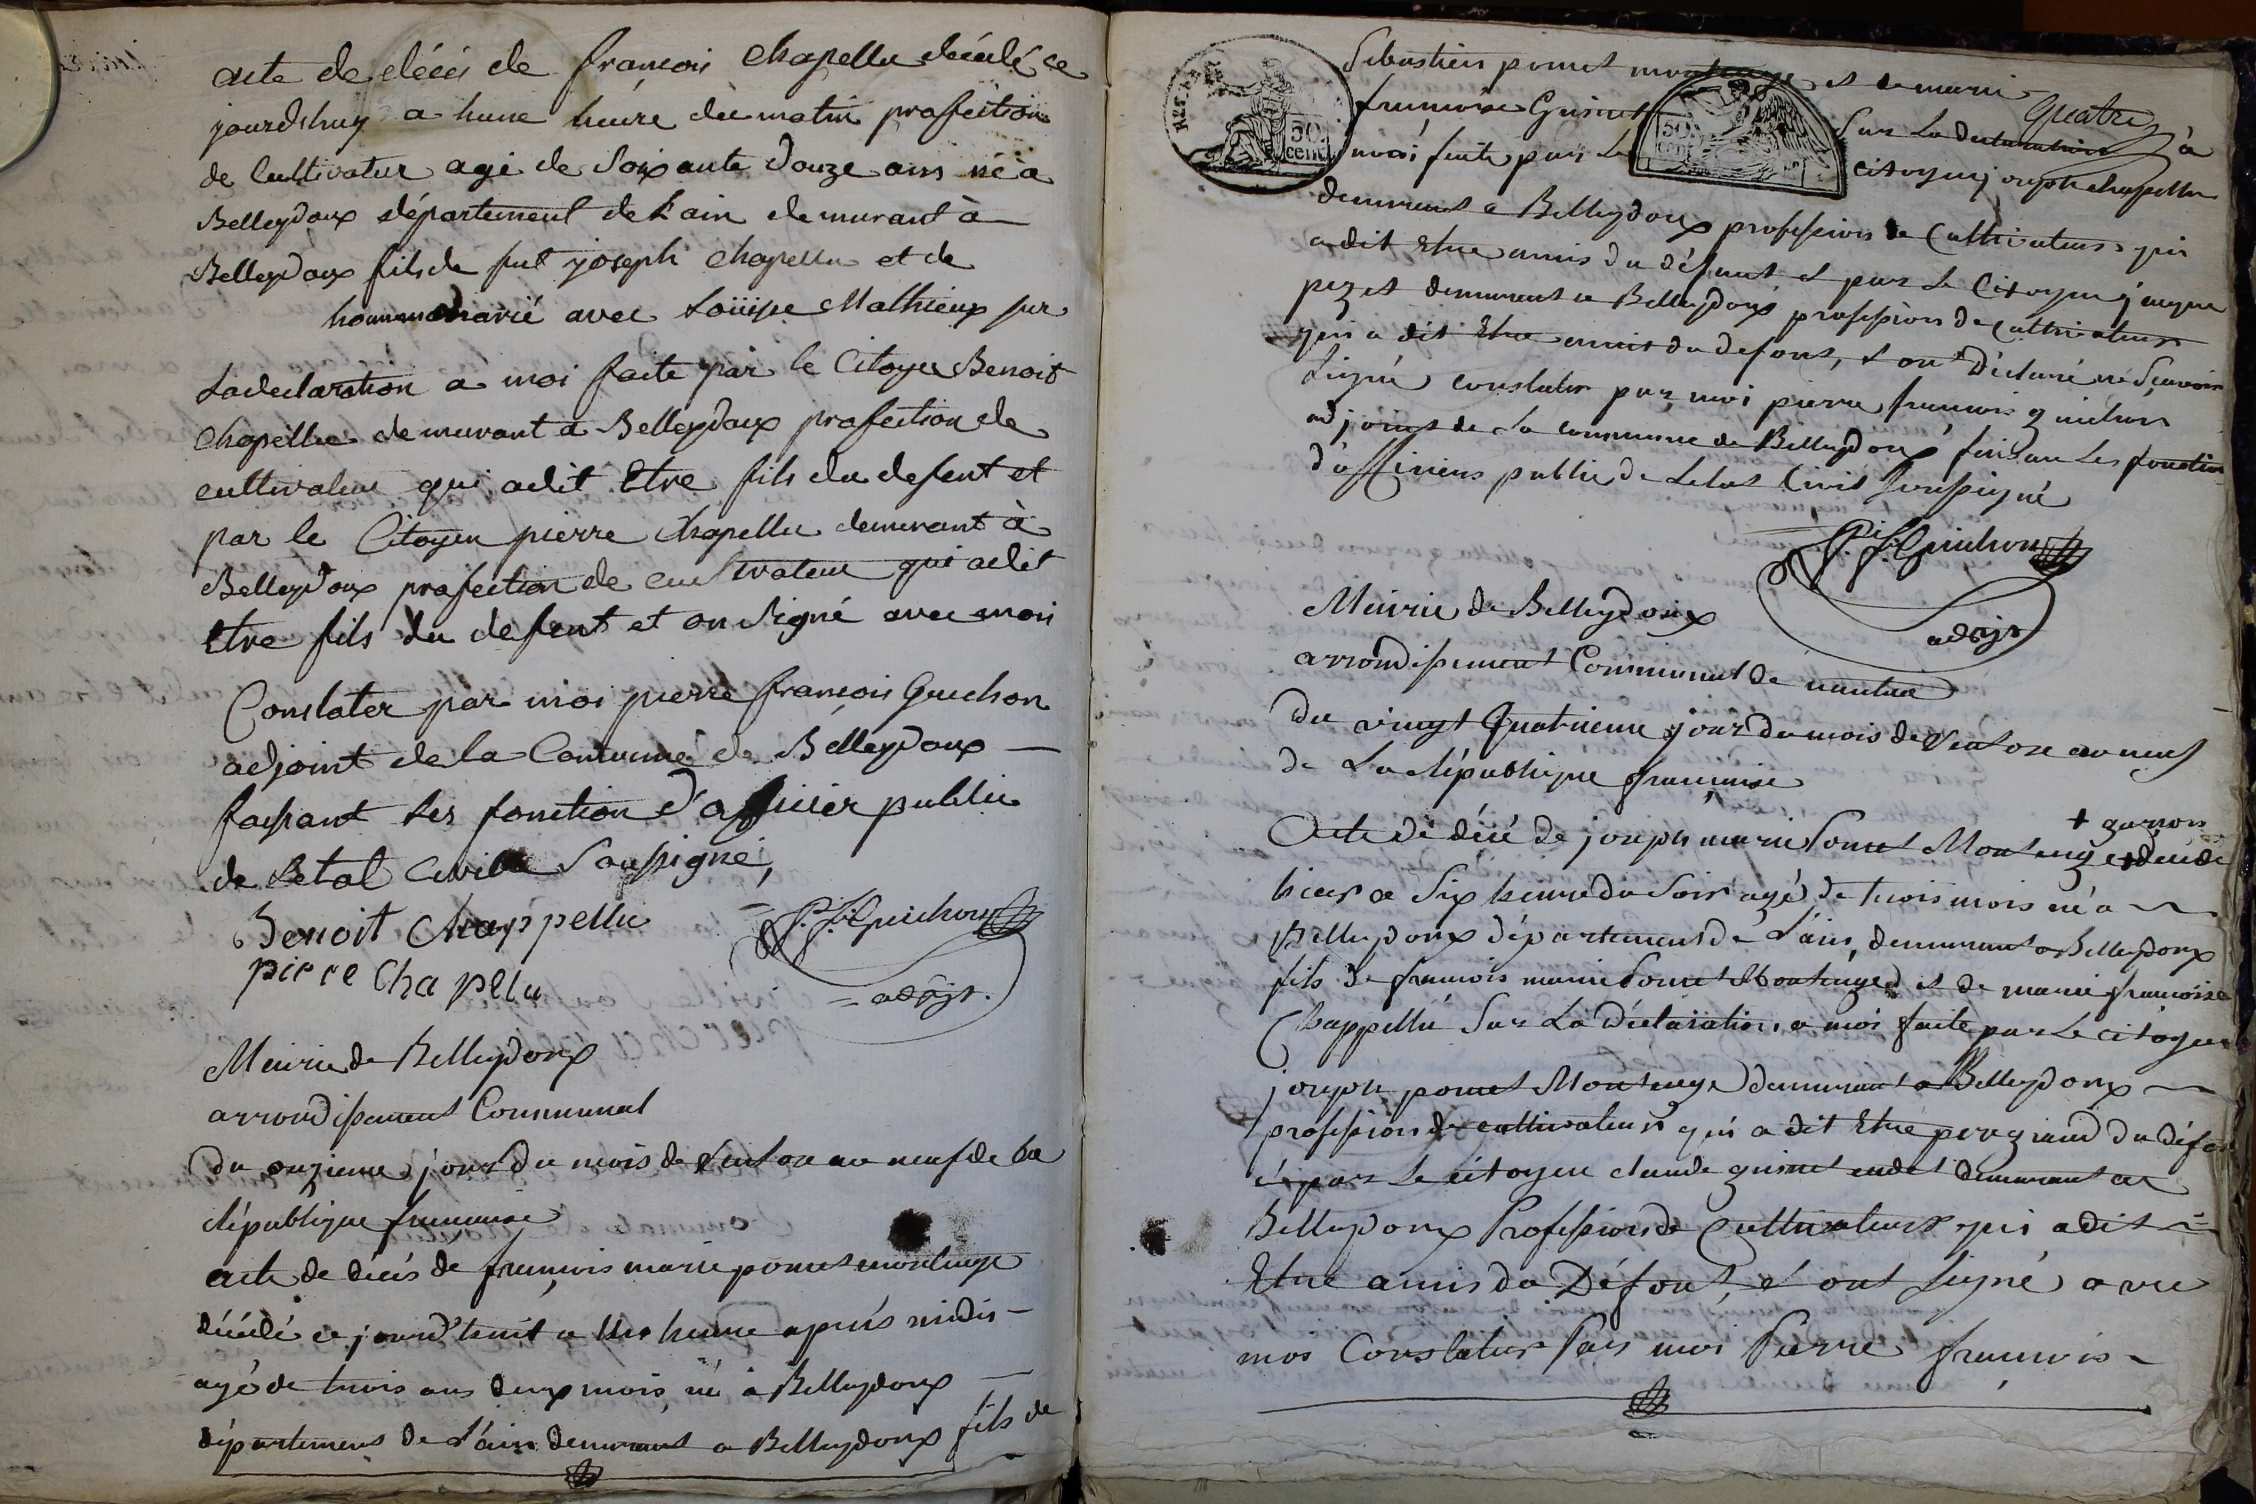 acte de décés de francois Chapellu décédé ce
jourdhuy a hune heure du matin profection
de Cultivateur agé de Soixante Douze ans né a
Belleydoux département de Lain demurant à
Belleydoux fils de fut joseph Chapellu et de
homme marié avec Loüise Mathieux sur
La declaration a moi faite par le Citoyen Benoit
Chapellu demurant a Belleydoux profection de
cultivateur qui a dit Etre fils du defent et
par le Citoyen pierre Chapellu demurant à
Belleydoux profection de cultivateur qui a dit
Etre fils du defent et on Signé avec moi
Constater par moi pierre francois Guichon
adjoint de la Commune de Belleydoux
faisant Les fonction d'officier public
de Letat Civille Soussigné,
Benoit Chappellu
pierre Chapelu
P. F. Guichon
adojt.
Mairie de Belleydoux
arrondissement Communal
du onzieme jour du mois de Ventose an neuf de La
République francaise
acte de décés de françois marie poncet montange
décédé ce jourd'huit a Une heure aprés midis
agé de trois ans deux mois né à Belleydoux
département de L'ain demurant a Belleydoux fils de
quatre
Sebastien poncet montange et de marie
francoise Guinet Sur La declaration à
moi faite par Le citoyen joseph chapellu
demurant a Belleydoux profession de Cultivateur qui
a dit Etre amis du défunt et par Le Citoyen jacque
perzet demurant a Belleydoux profession de Cultivateur
qui a dit Etre amit du defont, et ont Déclaré ne Sçavoir
Signé constater par moi pierre francois guichon
adjoint de La commune de Belleydoux faisan Les fonction
d'officiers public de Letat Civil Soussigné
P. F. Guichon
adojt
Mairie de Belleydoux
arrondissement Communal de nantua
Du vingt Quatrieme jour du mois de Ventose an neuf
de La République française
+ garson
Acte de décé de joseph marie Poncet Montange + décédé
hier a Six heure du Soir agé de trois mois né a
Belleydoux département de L'ain demurant a Belleydoux
fils de francois marie Poncet Montange et de marie francoise
Chappellu Sur La Déclaration a moi faite par Le citoyen
joseph poncet Montange demurant a Belleydoux
profession de cultivateur qui a dit Etre peregrand du défon
é par Le citoyen claude guinet demurant a
Belleydoux Profession de Cultivateur qui a dit
Etre amis du Défont, et ont Signé avec
moi Constater Par moi Pierre francois